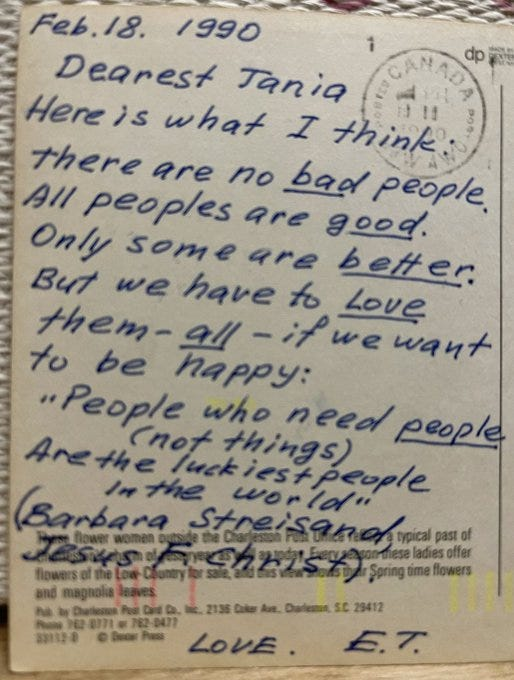 Feb. 18. 1990
1
dp
CANADA
Dearest Tania
Here is what I think:
there are no bad people.
All peoples are good.
Only some are better.
But we have to Love
them - all - if we want
to be happy:
"People who need people
(not things)
Are the luckiest people
In the world"
(Barbara Streisand
Jesus Christ).
These flower women outside the Charleston Post Office a typical past of
of as well as today. Every season these ladies offer
flowers of the Low-Country for sale, and this view shows their Spring time flowers
and magnolia leaves.
Pub. by Charleston Post Card Co., Inc., 2136 Coker Ave., Charleston, S.C. 29412
Phone 762-0771 or 762-0477
33112-D © Dexter Press
LOVE. E.T.